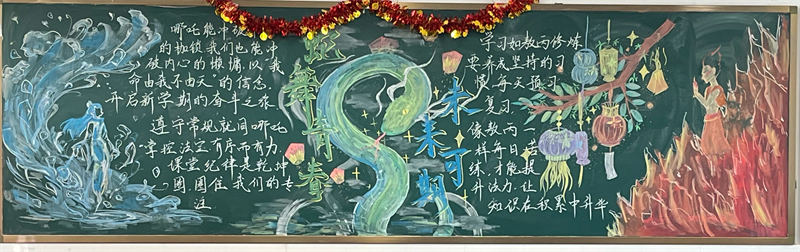 哪吒能冲破
的枷锁我们也能冲
破内心的慵懒,以"我
命由我不由天"的信念,
开启新学期的奋斗之旅
遵守常规就同哪吒
掌控法宝有序而有力,
课堂纪律是乾坤
圈,圈住我们的专
注
蛇舞青春
未来可期
学习如敖丙修炼
要养成坚持的习
惯,每天预习
复习
像敖丙一
样每日苦
练,才能提
升法力,让
知识在积累中升华